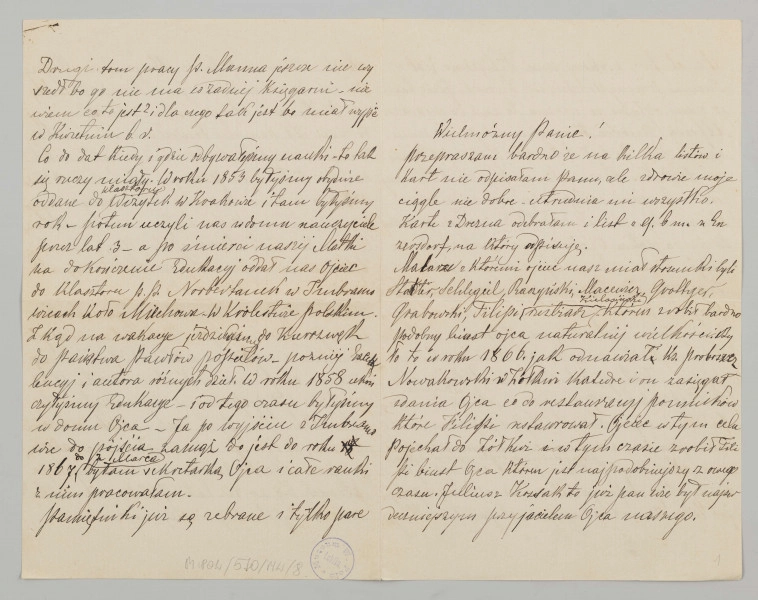 Drugi tom pracy p. Manna jeszcze nie wy
szedł bo go nie ma w żadnej Księgarni - nie
wiem co to jest? i dla czego tak jest bo miał wyjść
w Kwietniu b. r.
Co do dat kiedy i gdzie odbywałyśmy nauki - to tak
się rzeczy miały. W roku 1853 byłyśmy obydwie
oddane do klasztoru Wizytek w Krakowie i tam byłyśmy
rok - potem uczyli nas w domu nauczyciele
przez lat 3 - a po śmierci naszej Matki
na dokończenie Edukacyi oddał nas Ojciec
do Klasztoru p.p. Norbertanek w Imbramo
wicach koło Miechowa - w Królestwie polskiem.
Z kąd na wakacye jeździłam do Kurozwęk
do państwa Pawłów Popielów - później
i autora różnych dzieł. W roku 1858 ukoń
czyłyśmy Edukacye - i od tego czasu byłyśmy
w domu Ojca - Ja po wyjściu z Imbramo
wic do pójścia zamąż to jest do roku
1867, do 2 Marca byłam sekretarką Ojca i całe ranki
z nim pracowałam.
Pamiętniki już są zebrane i tylko parę
Wielmożny Panie!
Przepraszam bardzo że na kilka listów i
kart nie odpisałam Panu, ale zdrowie moje
ciągle nie dobre - utrudnia mi wszystko.
Kartę z Drezna odebrałam i list z 9. b.m. z En
zersdorf, na który odpisuję.
Malarze z którymi ojciec nasz miał stosunki byli
Stattler, Schlegel, Raczyński, Maccewicz, Grottger,
Grabowski, Filipi, rzeźbiarz, Kielisiński który zrobił bardzo
podobny biust ojca naturalnej wielkości. Było
to w roku 1860. jak odnawiał Ks. proboszcz
Nowakowski w Żółkwi Katedrę i on zasięgał
zdania Ojca co do restauracyi pomników
które Filippi restaurował. Ojciec w tym celu
pojechał do Żółkwi i w tym czasie zrobił Fili
ppi biust Ojca który jest najpodobniejszy z owego
czasu. Juliusz Kossak to już pan wie był najser
deczniejszym przyjacielem Ojca naszego.